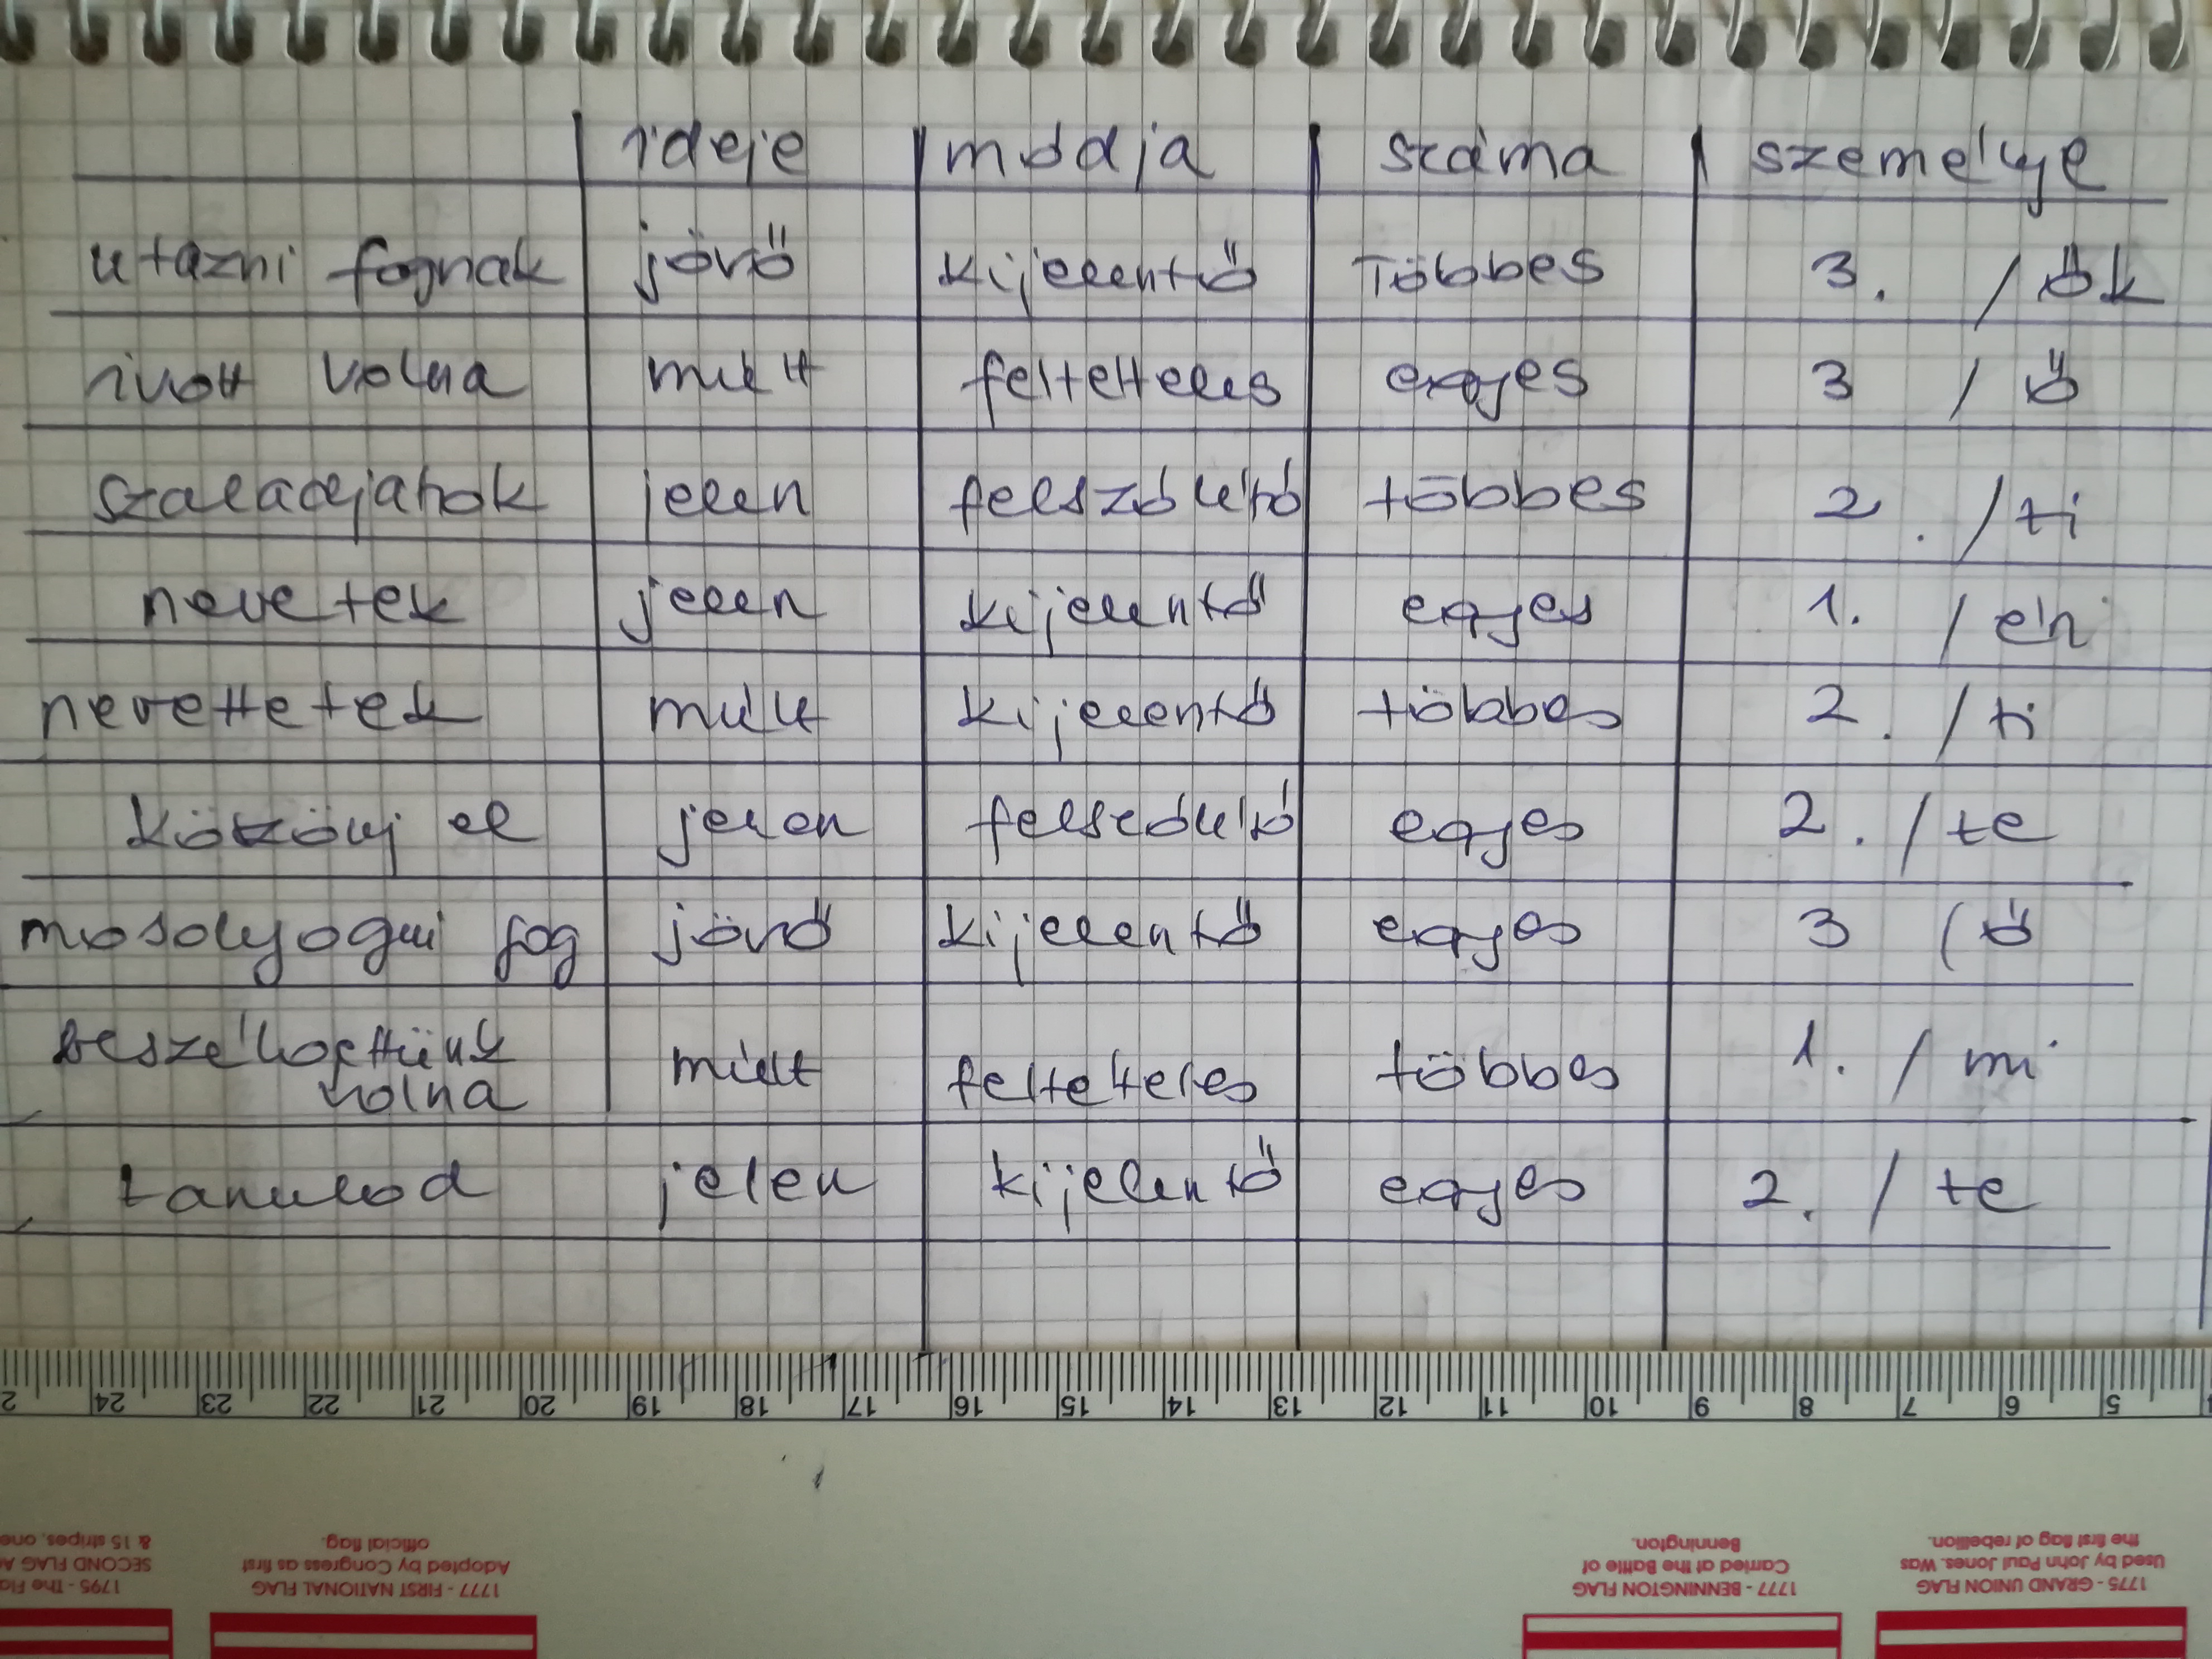 ideje módja száma személye
utazni fognak jövő kijelentő Többes 3. / ők
ivott volna mult feltetteles egyes 3 / ő
szaladjatok jelen felszólító többes 2. / ti
nevetek jelen kijelentő egyes 1. / én
nevettetek múlt kijelentő többes 2. / ti
köszönj el jelen felszólító egyes 2. / te
mosolyogni fog jövő kijelentő egyes 3 / ő
beszélgettünk
volna múlt feltételes többes 1. / mi
tanulod jelen kijelentő egyes 2. / te
24 23 22 21 20 19 18 17 16 15 14 13 12 11 10 9 8 7 6 5
1795 - The Fla
SECOND FLAG A
& 15 stripes, one
1777 - FIRST NATIONAL FLAG
Adopted by Congress as first
official flag.
1777 - BENNINGTON FLAG
Carried at the Battle of
Bennington.
1775 - GRAND UNION FLAG
Used by John Paul Jones. Was
the first flag of rebellion.